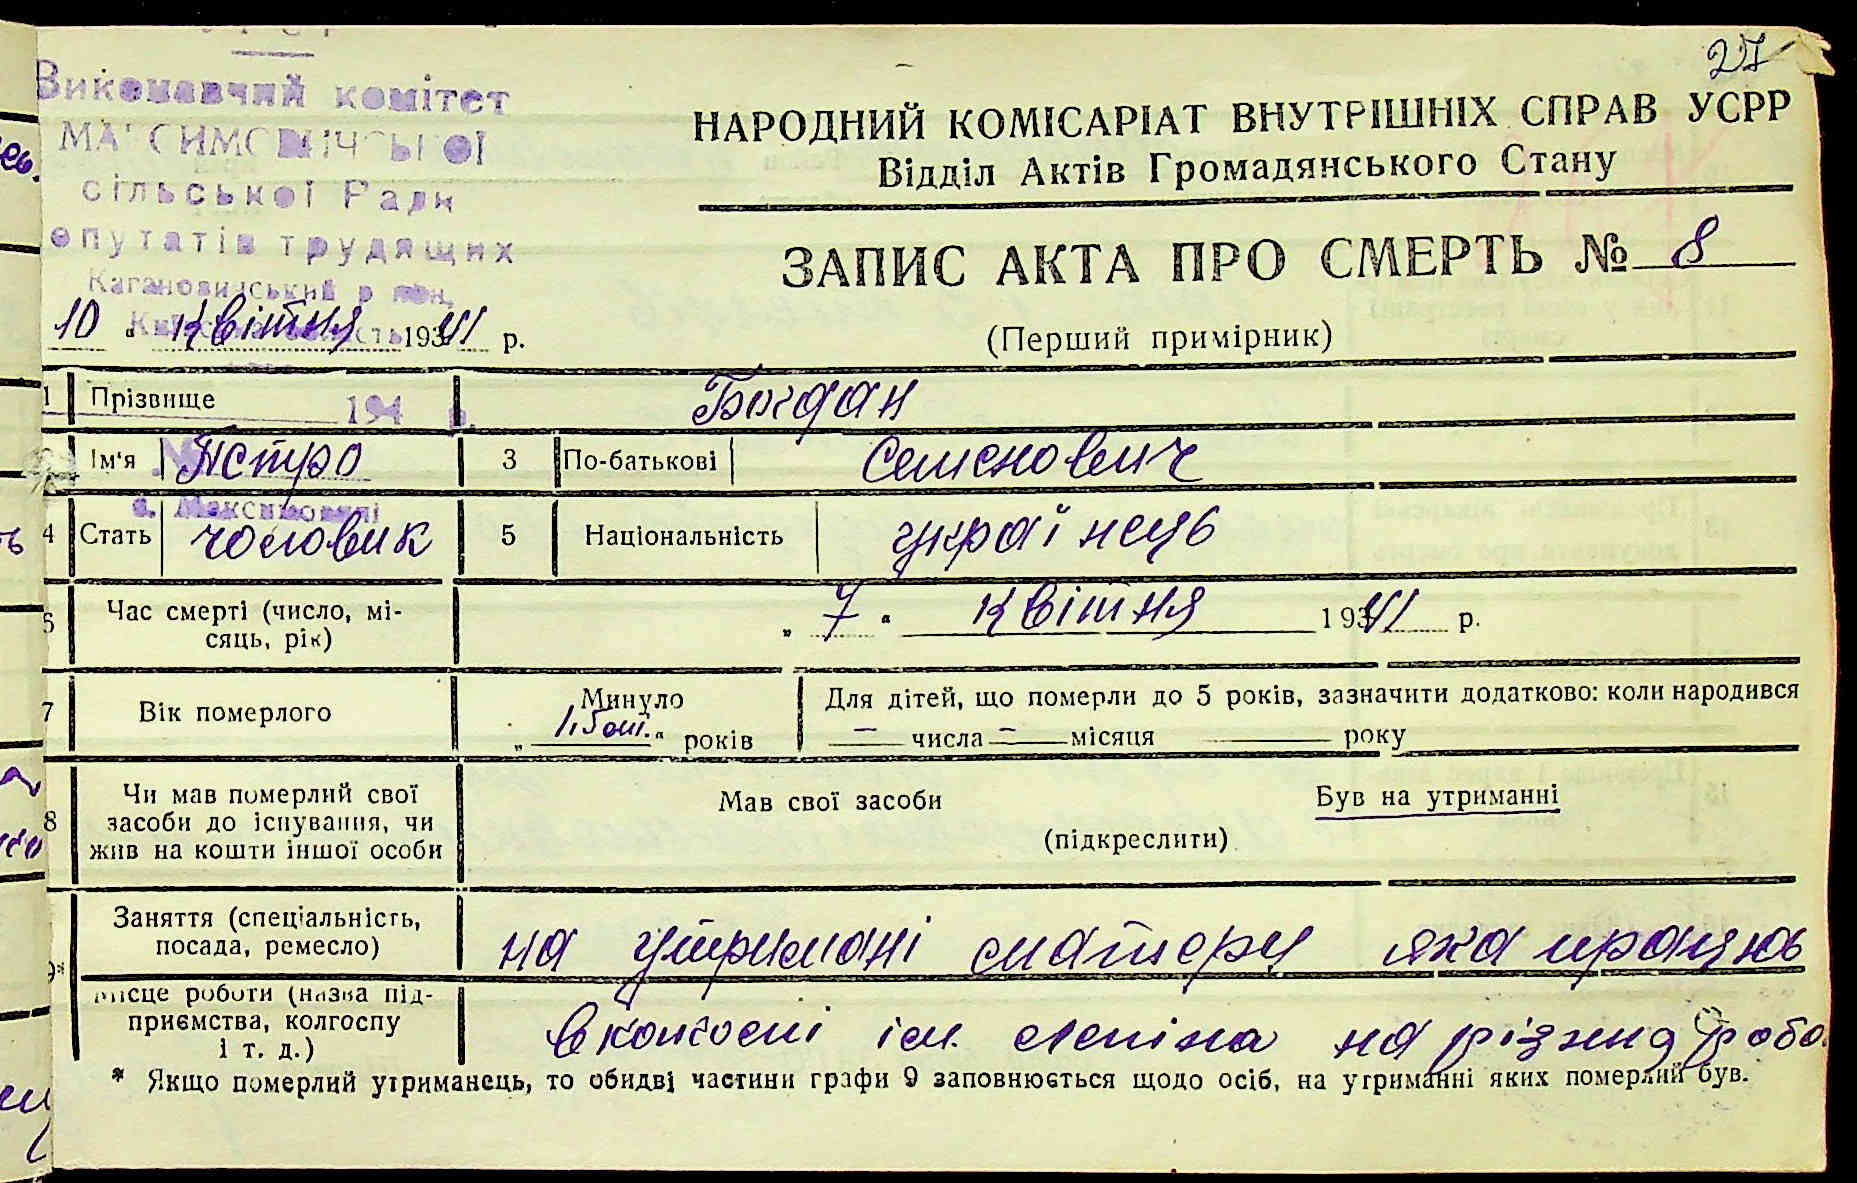 27
Виконавчий комітет
МАКСИМОВИЧСЬКОЇ
сільської Ради
депутатів трудящих
Кагановичський р-он,
Київська область
НАРОДНИЙ КОМІСАРІАТ ВНУТРІШНІХ СПРАВ УСРР
Відділ Актів Громадянського Стану
ЗАПИС АКТА ПРО СМЕРТЬ № 8
„10“ Квітня 1941 р.
(Перший примірник)
1 Прізвище Богдан
194 р.
2 Ім'я Петро 3 По-батькові Семенович
с. Максимовичі
4 Стать чоловик 5 Національність українець
6 Час смерті (число, мі-
сяць, рік) „7“ квітня 1941 р.
7 Вік померлого Минуло
„ “ років
Для дітей, що померли до 5 років, зазначити додатково: коли народився
— числа — місяця року
8 Чи мав померлий свої
засоби до існування, чи
жив на кошти іншої особи
Мав свої засоби Був на утриманні
(підкреслити)
9* Заняття (спеціальність,
посада, ремесло) на утримані матеру яка працює
Місце роботи (назва під-
приємства, колгоспу
і т. д.) в колгоспі ім. Леніна на різних робо
* Якщо померлий утриманець, то обидві частини графи 9 заповнюється щодо осіб, на утриманні яких померлий був.